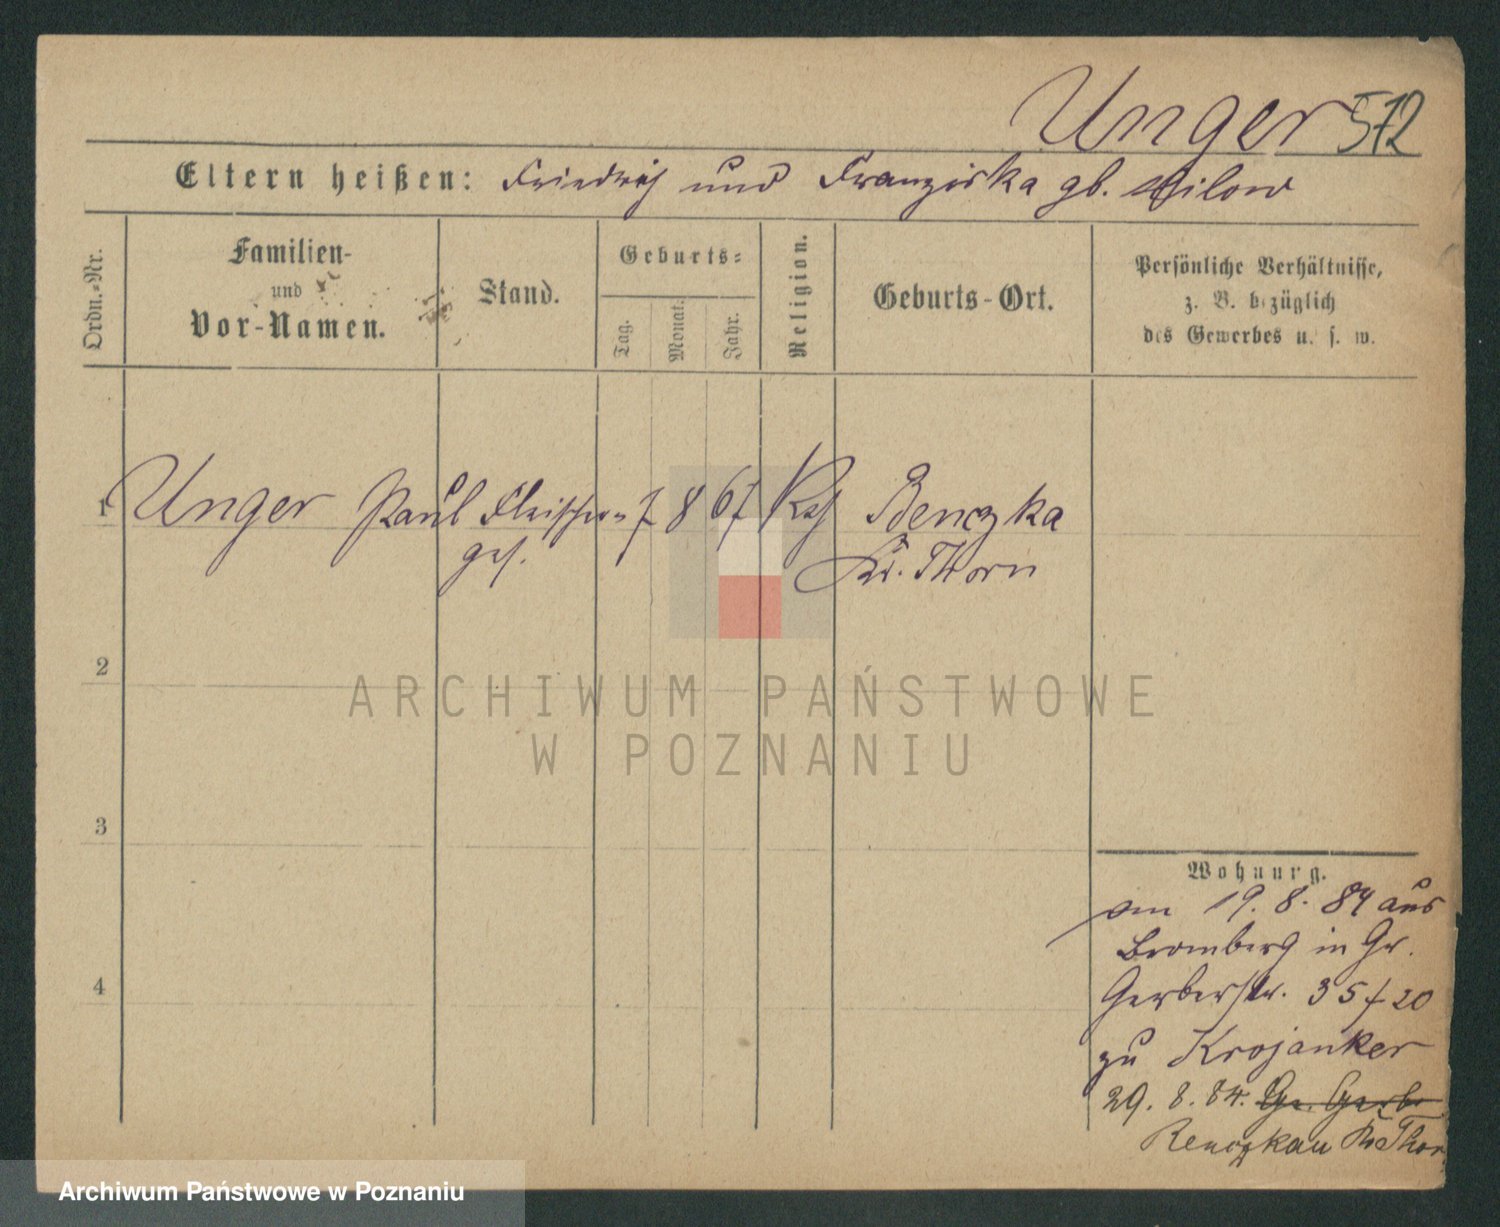 Unger 572
Eltern heißen: Friedrich und Franziska gb. Milow
Ordn.-Nr.
Familien-
und
Vor-Namen.
Stand.
Geburts-
Tag.
Monat.
Jahr.
Religion.
Geburts-Ort.
Persönliche Verhältnisse,
z. B. bezüglich
des Gewerbes u. s. w.
1 Unger Paul Fleischer- 7 8 67 Kth Benczka
ges. Kr. Thorn
2
3
4
Wohnung.
am 19. 8. 84 aus
Bromberg in Gr.
Gerberstr. 35/20
zu Krojanker
29. 8. 84. Gr. Gerb
Renczkau Kr Thor
ARCHIWUM PAŃSTWOWE
W POZNANIU
Archiwum Państwowe w Poznaniu